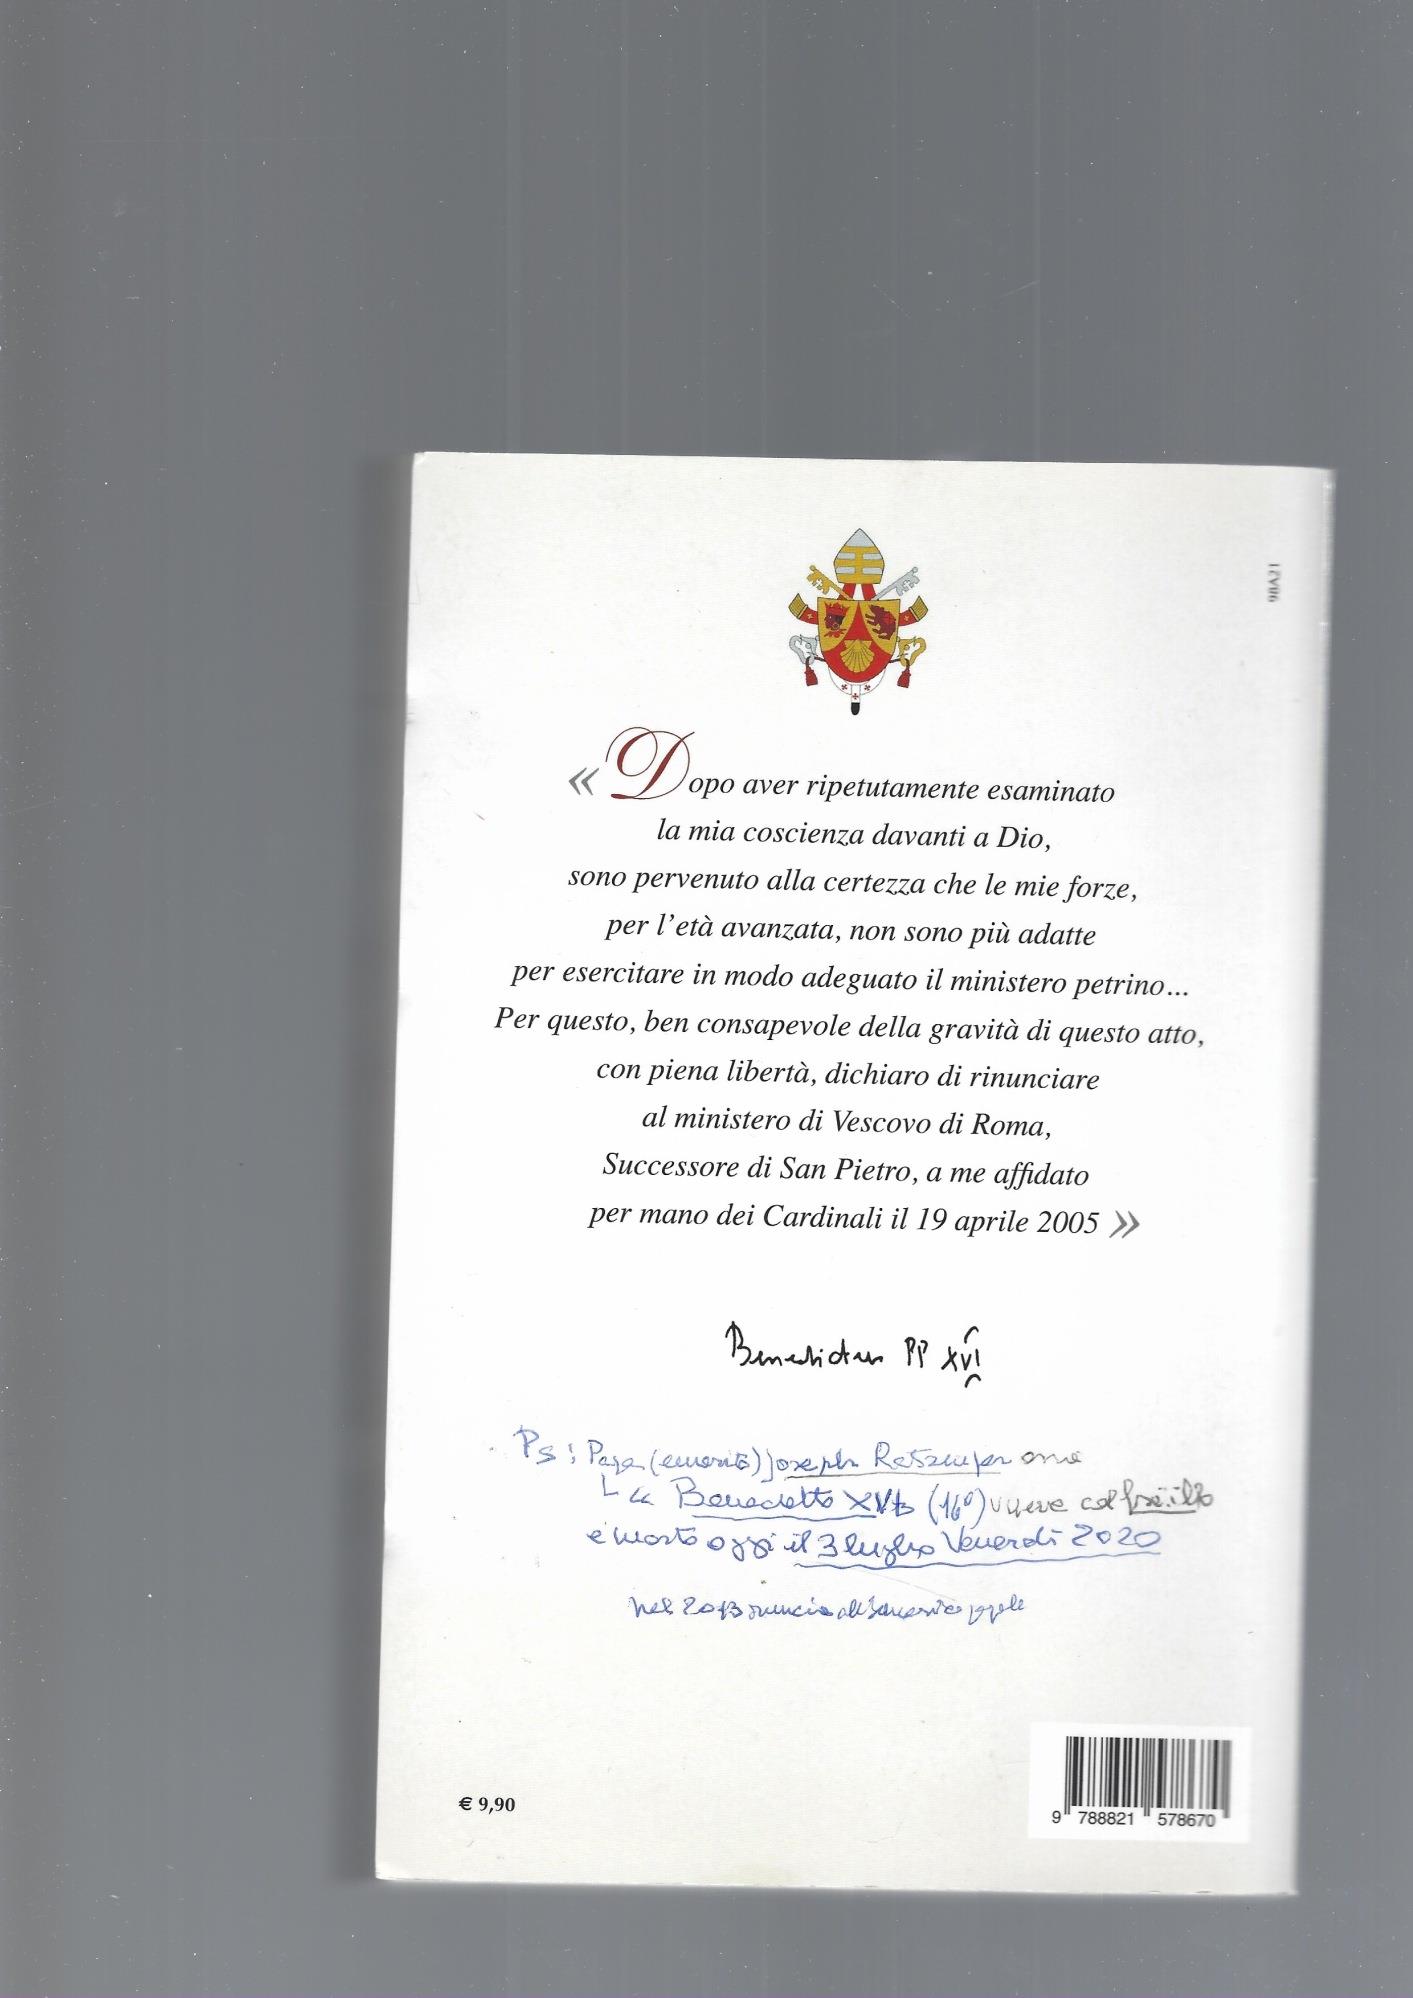 98A21
« Dopo aver ripetutamente esaminato
la mia coscienza davanti a Dio,
sono pervenuto alla certezza che le mie forze,
per l’età avanzata, non sono più adatte
per esercitare in modo adeguato il ministero petrino...
Per questo, ben consapevole della gravità di questo atto,
con piena libertà, dichiaro di rinunciare
al ministero di Vescovo di Roma,
Successore di San Pietro, a me affidato
per mano dei Cardinali il 19 aprile 2005 »
Benedictus PP XVI
Ps: Papa (emerito) Joseph
Benedetto XVI (16°)
è morto oggi il 3 luglio Venerdì 2020
nel 2013
€ 9,90
9 788821 578670